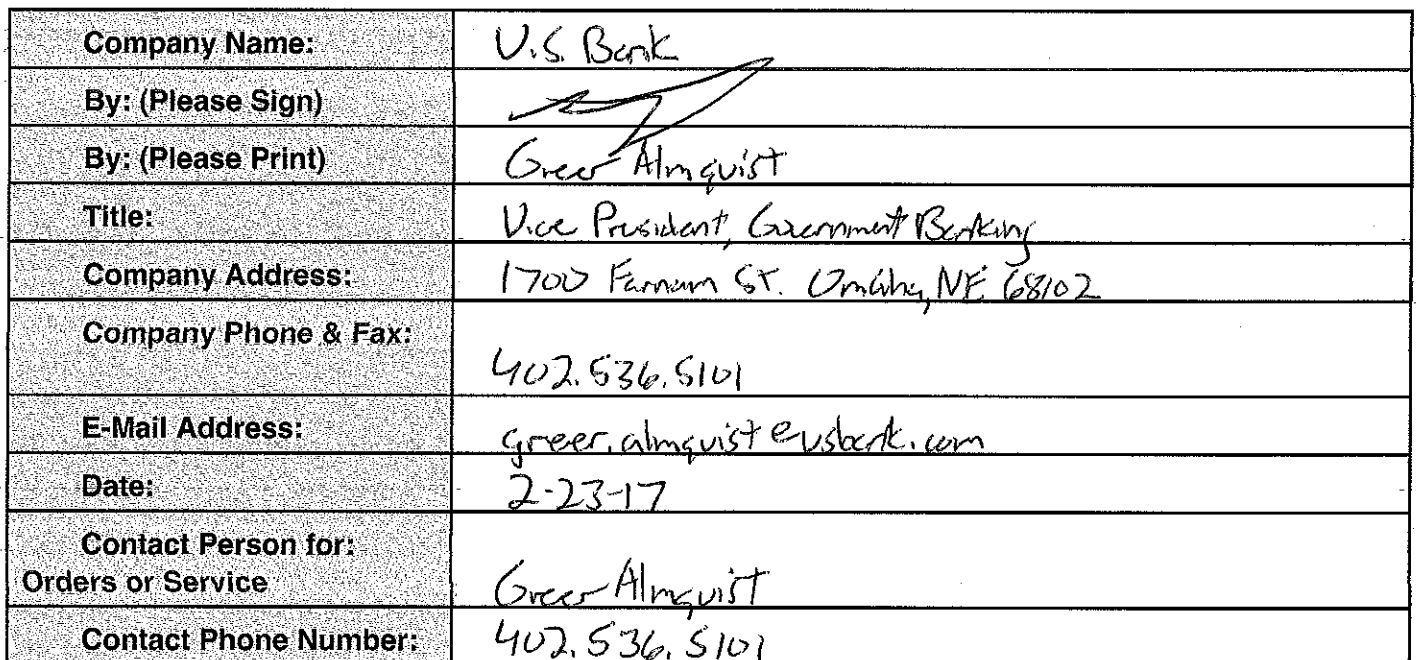 Company Name: U.S. Bank
By: (Please Sign)
By: (Please Print) Greer Almquist
Title: Vice President, Government Banking
Company Address: 1700 Farnam St. Omaha, NE 68102
Company Phone & Fax:
402.536.5101
E-Mail Address: greer.almquist@usbank.com
Date: 2-23-17
Contact Person for:
Orders or Service Greer Almquist
Contact Phone Number: 402.536.5101